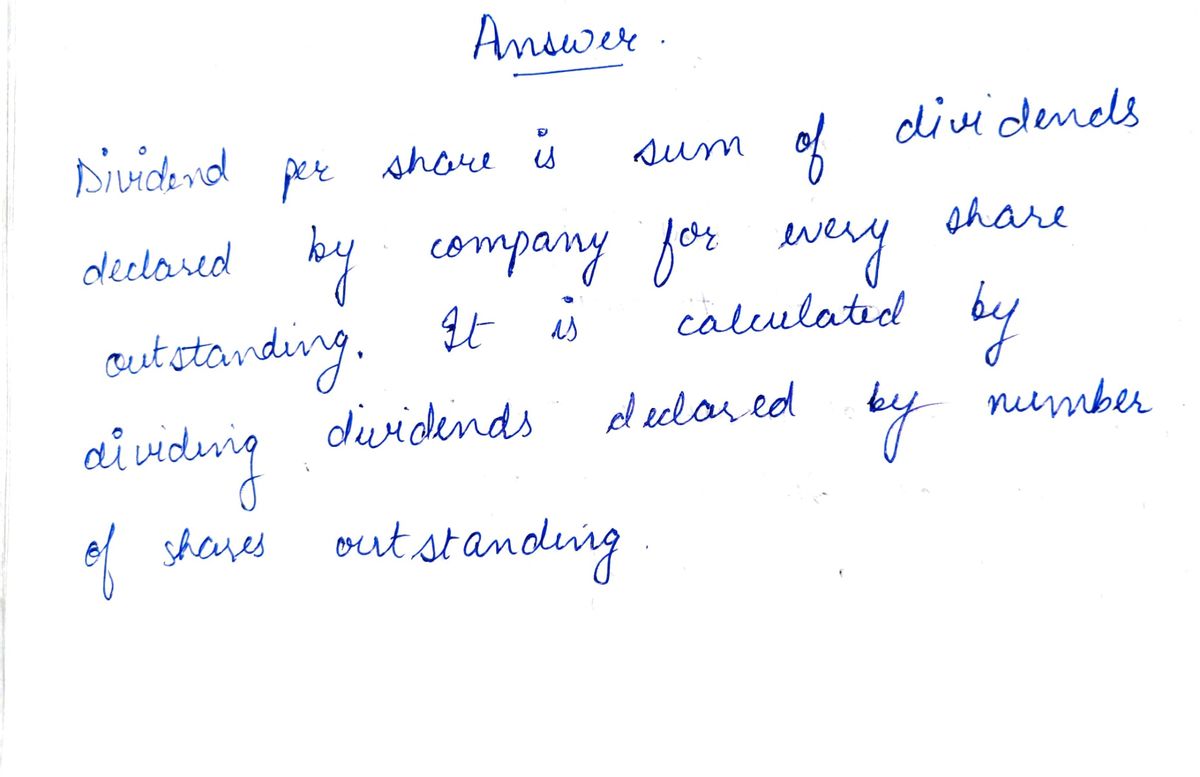 Answer.
Dividend per share is sum of dividends
declared by company for every share
outstanding. It is calculated by
dividing dividends declared by number
of shares outstanding.